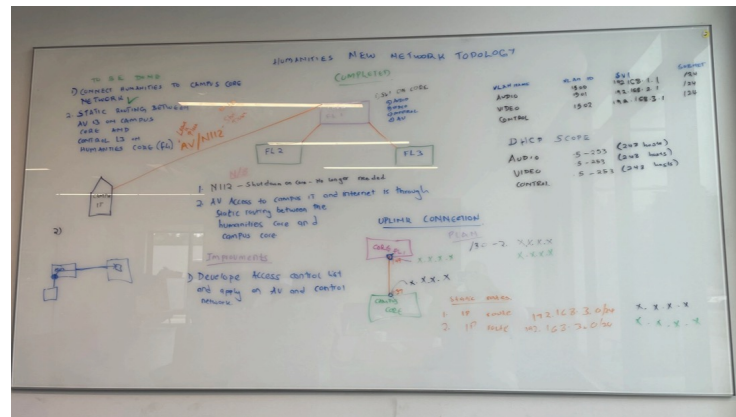 HUMANITIES NEW NETWORK TOPOLOGY
TO BE DONE
1) CONNECT HUMANITIES TO CAMPUS CORE
NETWORK ✓
2. STATIC ROUTING BETWEEN
AV L3 ON CAMPUS
CORE AND
CONTROL L3 ON
HUMANITIES CORE (FL1)
AV/N112
COMPLETED
FL2
FL3
CAMPUS
IT
1. N112 - Shutdown on core - No longer needed
2. AV Access to campus IT and internet is through
static routing between the
humanities core and
campus core
2)
Improvments
1) Develope Access control list
and apply on AV and control
network.
VLAN NAME VLAN ID SVI SUBNET
AUDIO 1300 192.168.1.1 /24
VIDEO 1301 192.168.2.1 /24
CONTROL 1302 192.168.3.1 /24
DHCP SCOPE
AUDIO .5-253 (248 hosts)
VIDEO .5-253 (248 hosts)
CONTROL .5-253 (248 hosts)
UPLINK CONNECTION
CORE
x.x.x.x
/30 - 2 x.x.x.x
x.x.x.x
x.x.x.x
CAMPUS
CORE
1. IP route 192.168.3.0/24 x.x.x.x
2. IP route 192.168.3.0/24 x.x.x.x